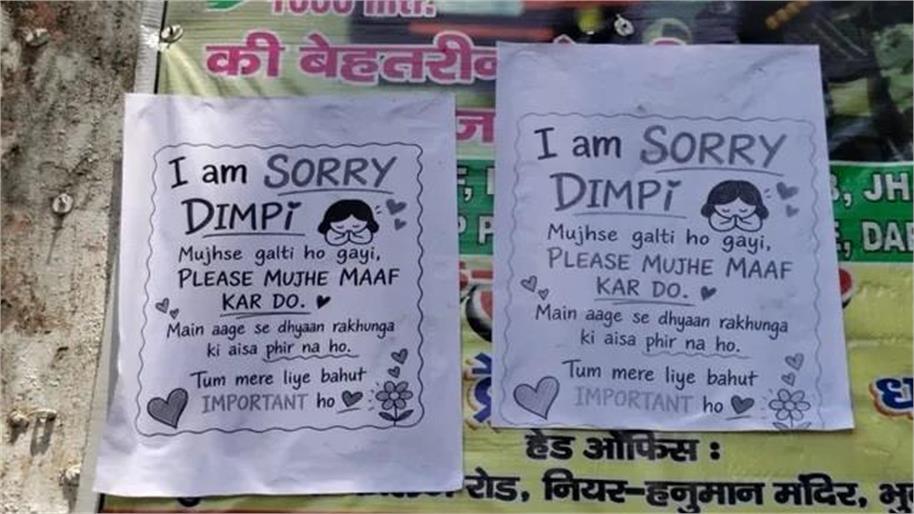 1000
की बेहतरीन
I am SORRY
DIMPi
Mujhse galti ho gayi,
PLEASE MUJHE MAAF
KAR DO.
Main aage se dhyaan rakhunga
ki aisa phir na ho.
Tum mere liye bahut
IMPORTANT ho
I am SORRY
DIMPi
Mujhse galti ho gayi,
PLEASE MUJHE MAAF
KAR DO.
Main aage se dhyaan rakhunga
ki aisa phir na ho.
Tum mere liye bahut
IMPORTANT ho
, JH
, DAR
हेड ऑफिस :
रोड, नियर-हनुमान मंदिर,